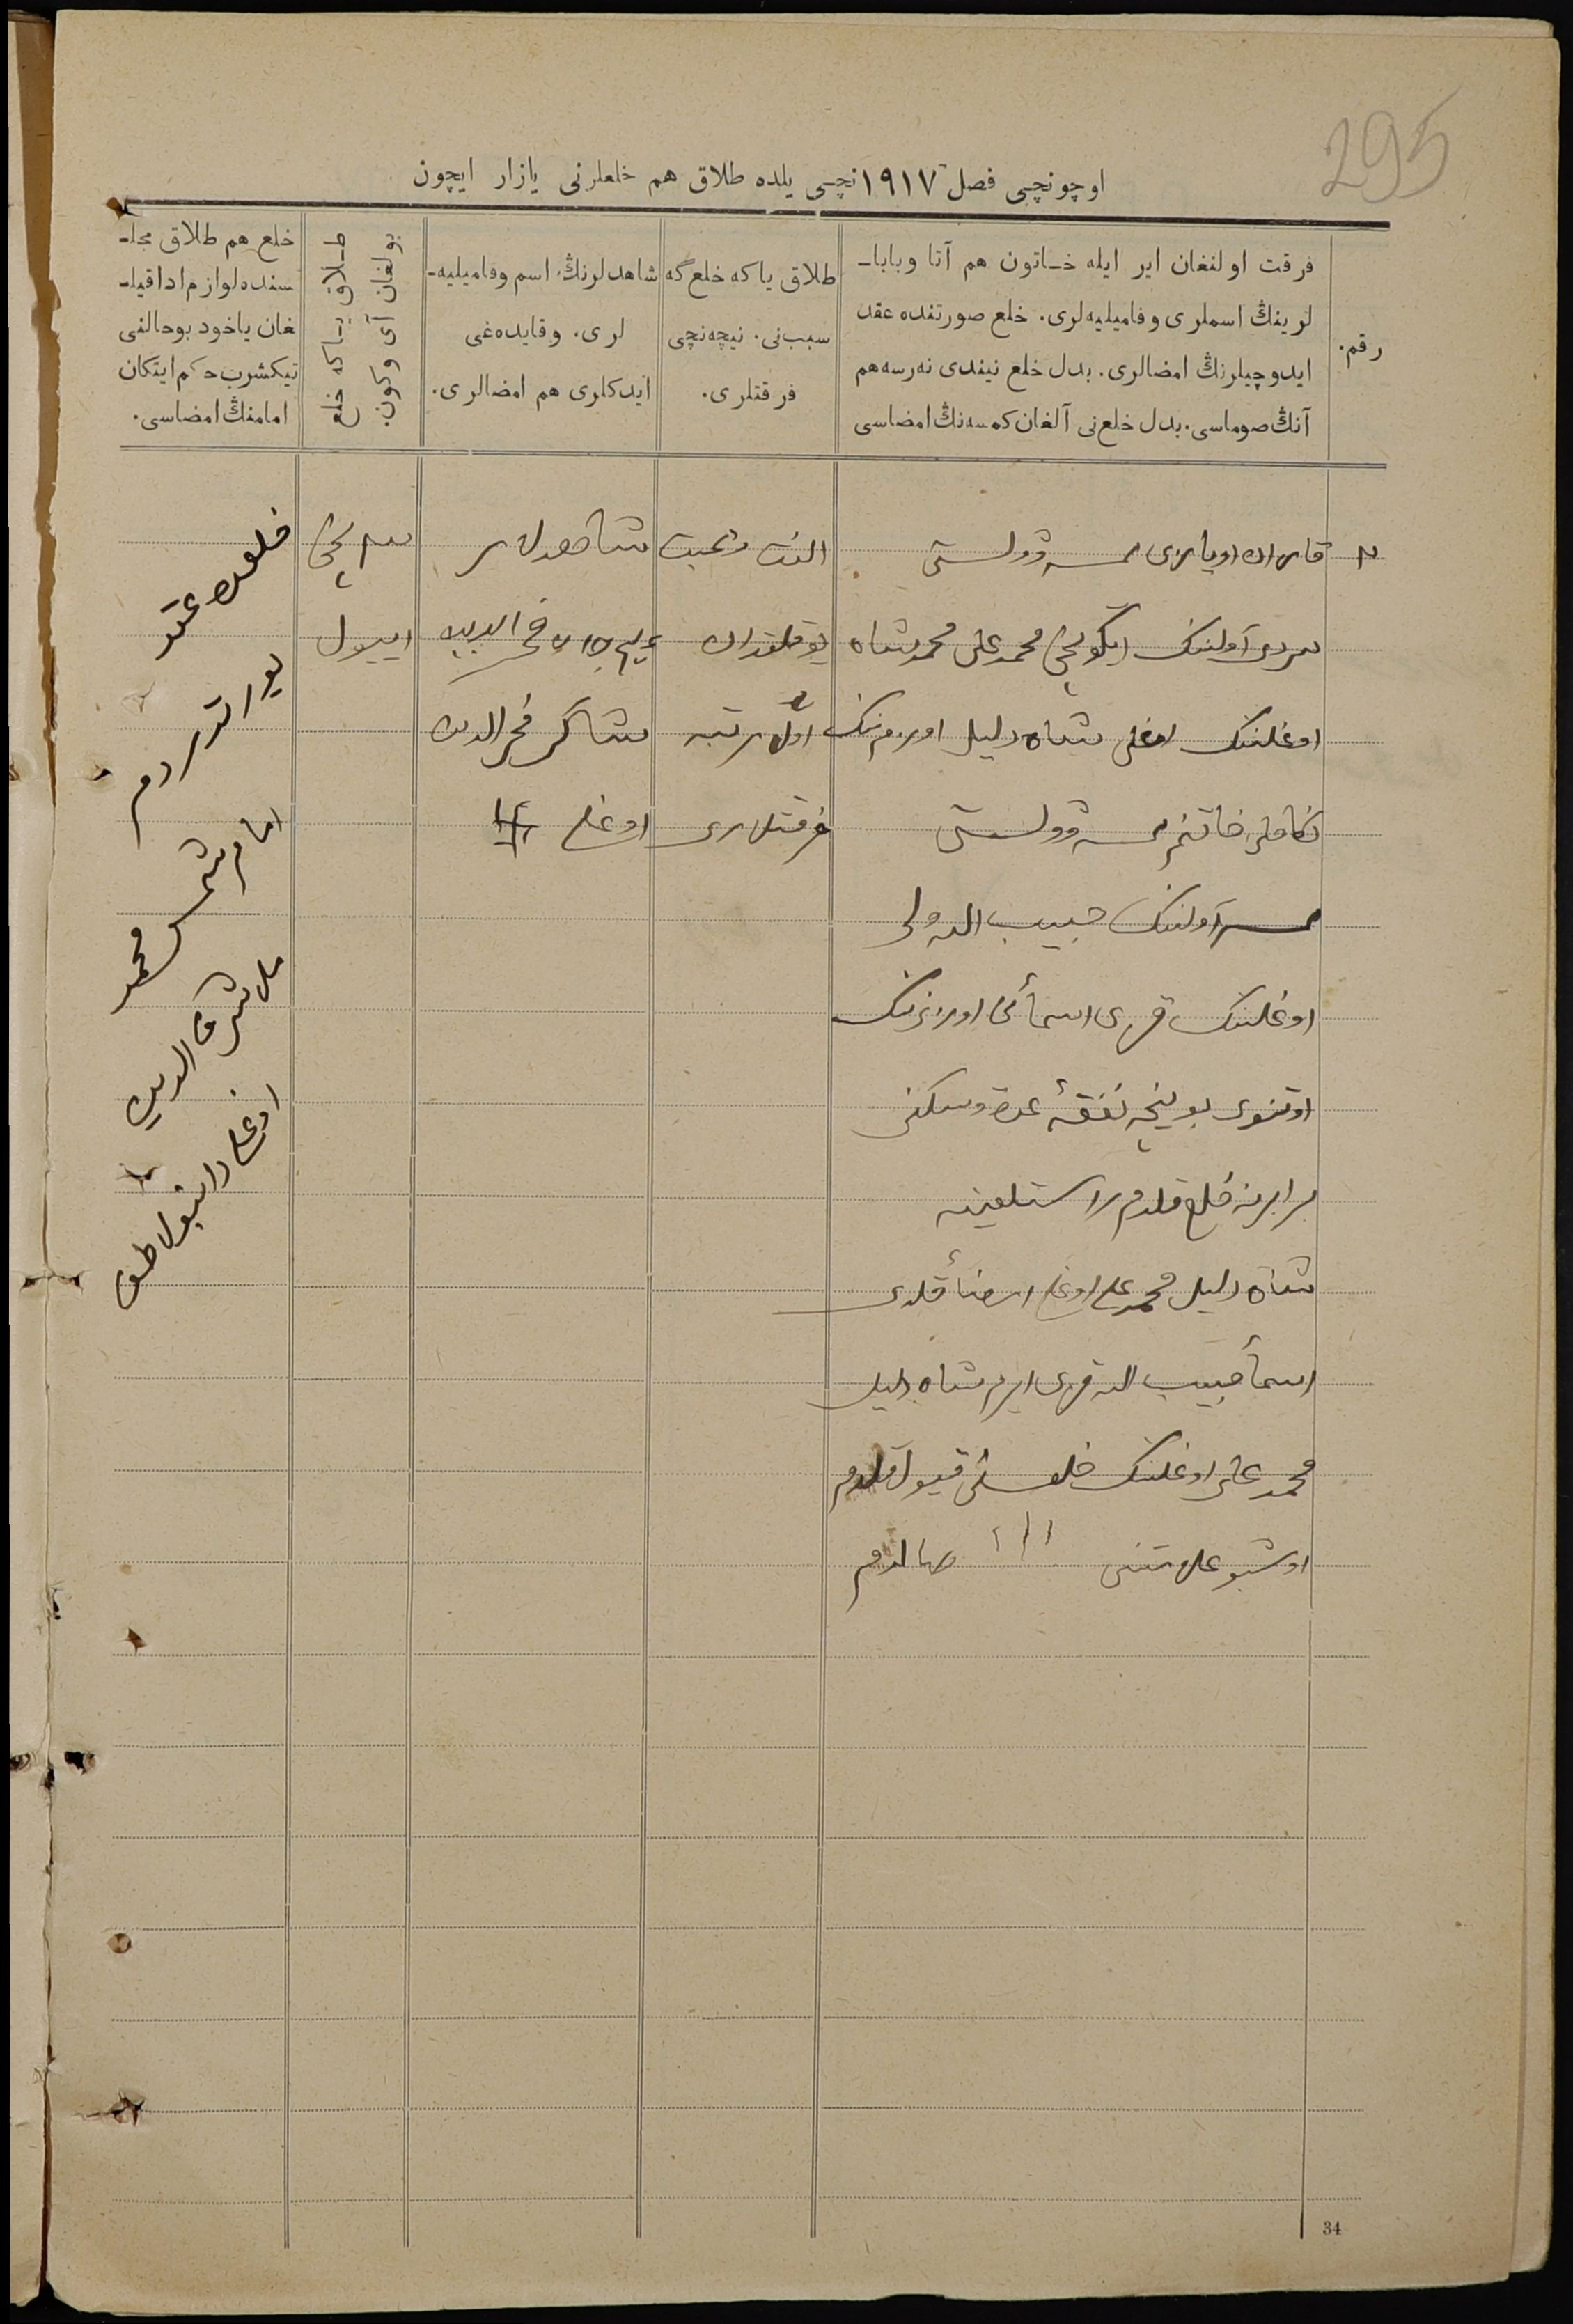 295
اوچونچی فصل ١٩١٧ نچی یلده طلاق هم خلعلرنی یازار ایچون
رقم.
فرقت اولنغان ایر ایله خاتون هم آتا وبابا-
لرینڭ اسملری وفامیلیه‌لری. خلع صورتنده عقد
ایدوچیلرنڭ امضالری. بدل خلع نیندی نه‌رسه هم
آنڭ صوماسی. بدل خلع‌نی آلغان کمسه‌نڭ امضاسی
طلاق یاکه خلع گه
سبب‌نی. نیچه‌نچی
فرقتلری.
شاهدلرنڭ اسم وفامیلیه-
لری. وقایده‌غی
ایدکلری هم امضالری.
طلاق یاکه خلع
بولغان آی وکون.
خلع هم طلاق مجلـ
سنده لوازم ادا قیلـ
غان یاخود بوحالنی
تیکشرب حکم ایتکان
امامنڭ امضاسی.
اویازی وولستی
آولینک محمد علی محمد شاه
اوغلننک اوغلی شاه دلیل اورزمنک
خاتنم وولستی
آولننک حبیب الله ولی
اوغلننک قزی اسمأ نی اورزینک
اوتنوی بوینچه نفقهٔ عدة وسکنی
برابرینه خلع قلدم راستلغینه
شاه دلیل محمد علی اوغلی امضأ قلدی
اسمأ حبیب الله قزی ایرم شاه دلیل
محمد علی اوغلننک خلعسنی قبول قلدم
اوشبو علامتنی ااا صالدم
الفت ومحبت
یوقلقدان
اول مرتبه
فرقتلری
شاهدلر
فخر الدین
شاکر فخر الدین
اوغلی
نچی
اییول
خلعده عقد
یورتدردم
امام شمس محمد
شرف الدین
اوغلی
34